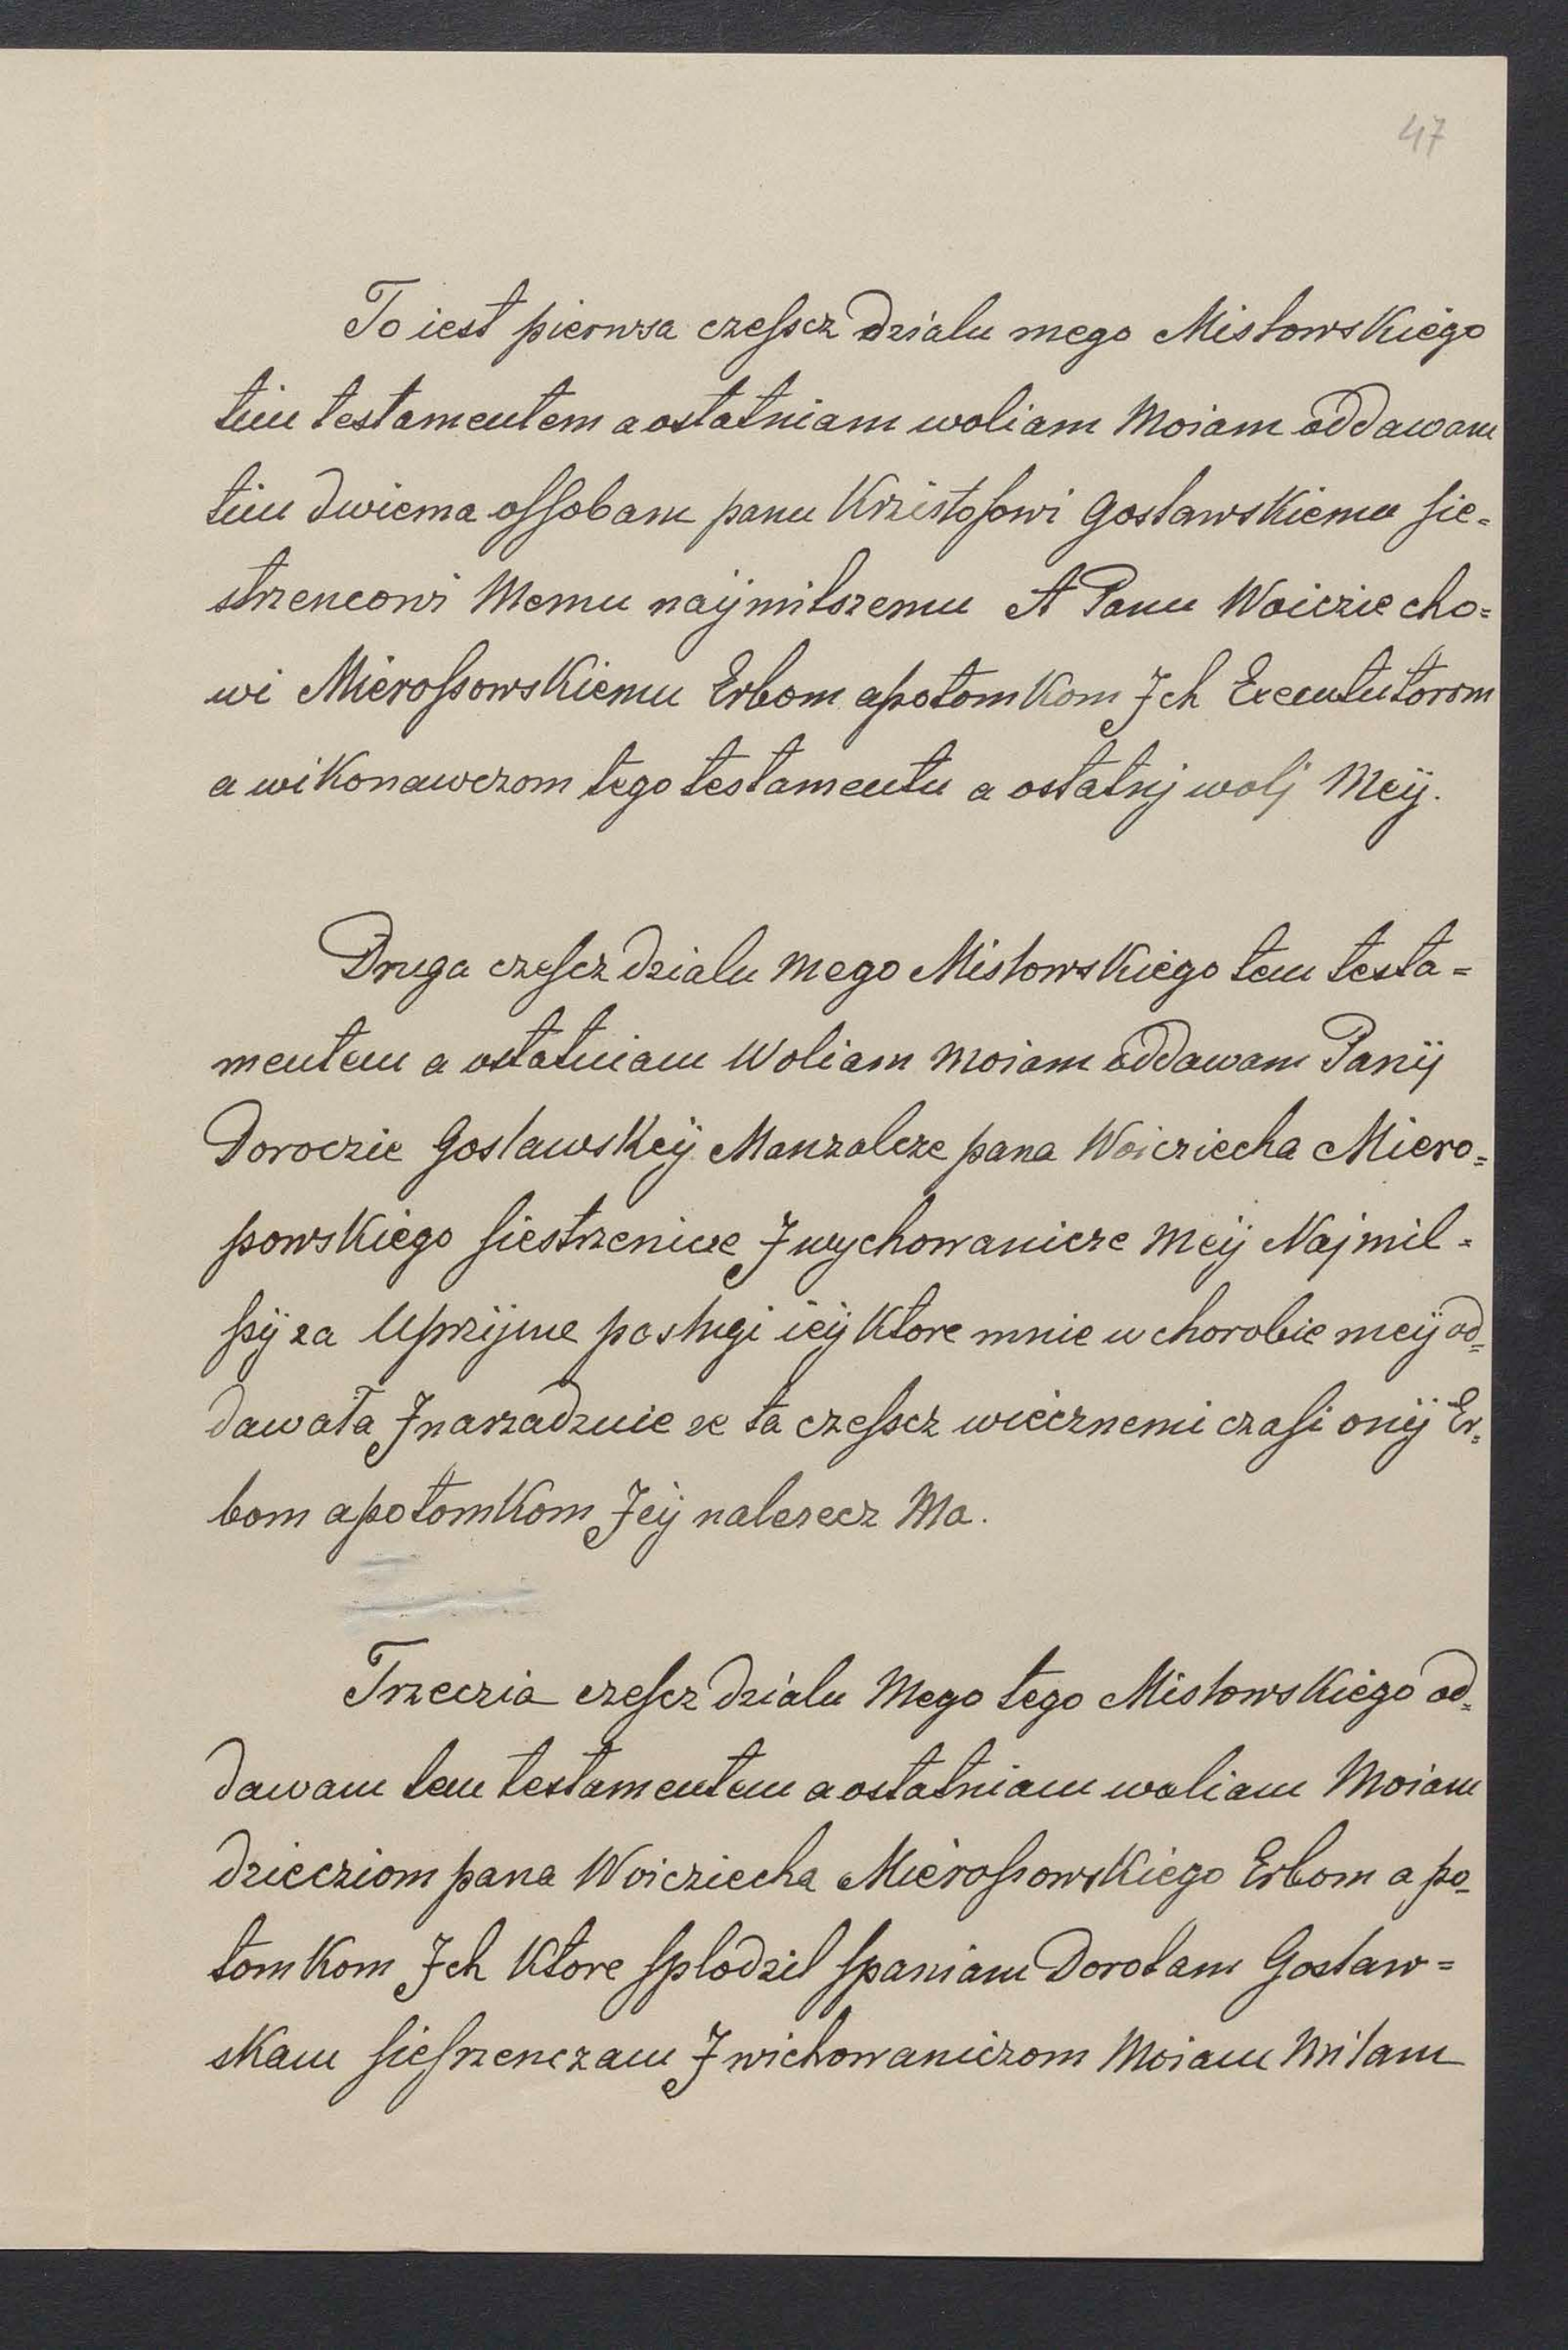 47
To iest pierwsa czeſscz działu mego Misłowskiego
tim testamentem a ostatniam woliam Moiam oddawam
tim dwiema oſſobam panu Krzistoſowi Gosławskiemu ſie=
strzencowi Memu naÿmilszemu A Panu Woicziecho=
wi Mieroſsowskiemu Erbom apotomkom Jch Execututorom
a wikonawczom tego testamentu a ostatnj wolj Meÿ.
Druga czeſcz działu mego Misłowskiego tem testa=
mentem a ostatniam Woliam moiam oddawam Panÿ
Doroczie Gosławskeÿ Manzalcze pana Woicziecha Miero=
ſsowskiego ſiestrzenice J wychowanicze Meÿ Najmil=
ſsÿ za Uprzijme posługi ieÿ Ktore mnie w chorobie meÿ od=
dawała J narzadznie ze ta czeſscz wiecznemi czaſi onÿ Er=
bom apotomkom Jeÿ nalezecz Ma.
Trzeczia czeſcz działu Mego tego Misłowskiego od=
dawam tem testamentem a ostatniam woliam Moiam
dziecziom pana Woicziecha Mieroſsowskiego Erbom a po=
tomkom Jch Ktore ſplodzil ſpaniam Dorotam Gosław=
skam ſieſrzenczam J wichowaniczom Moiam Miłam